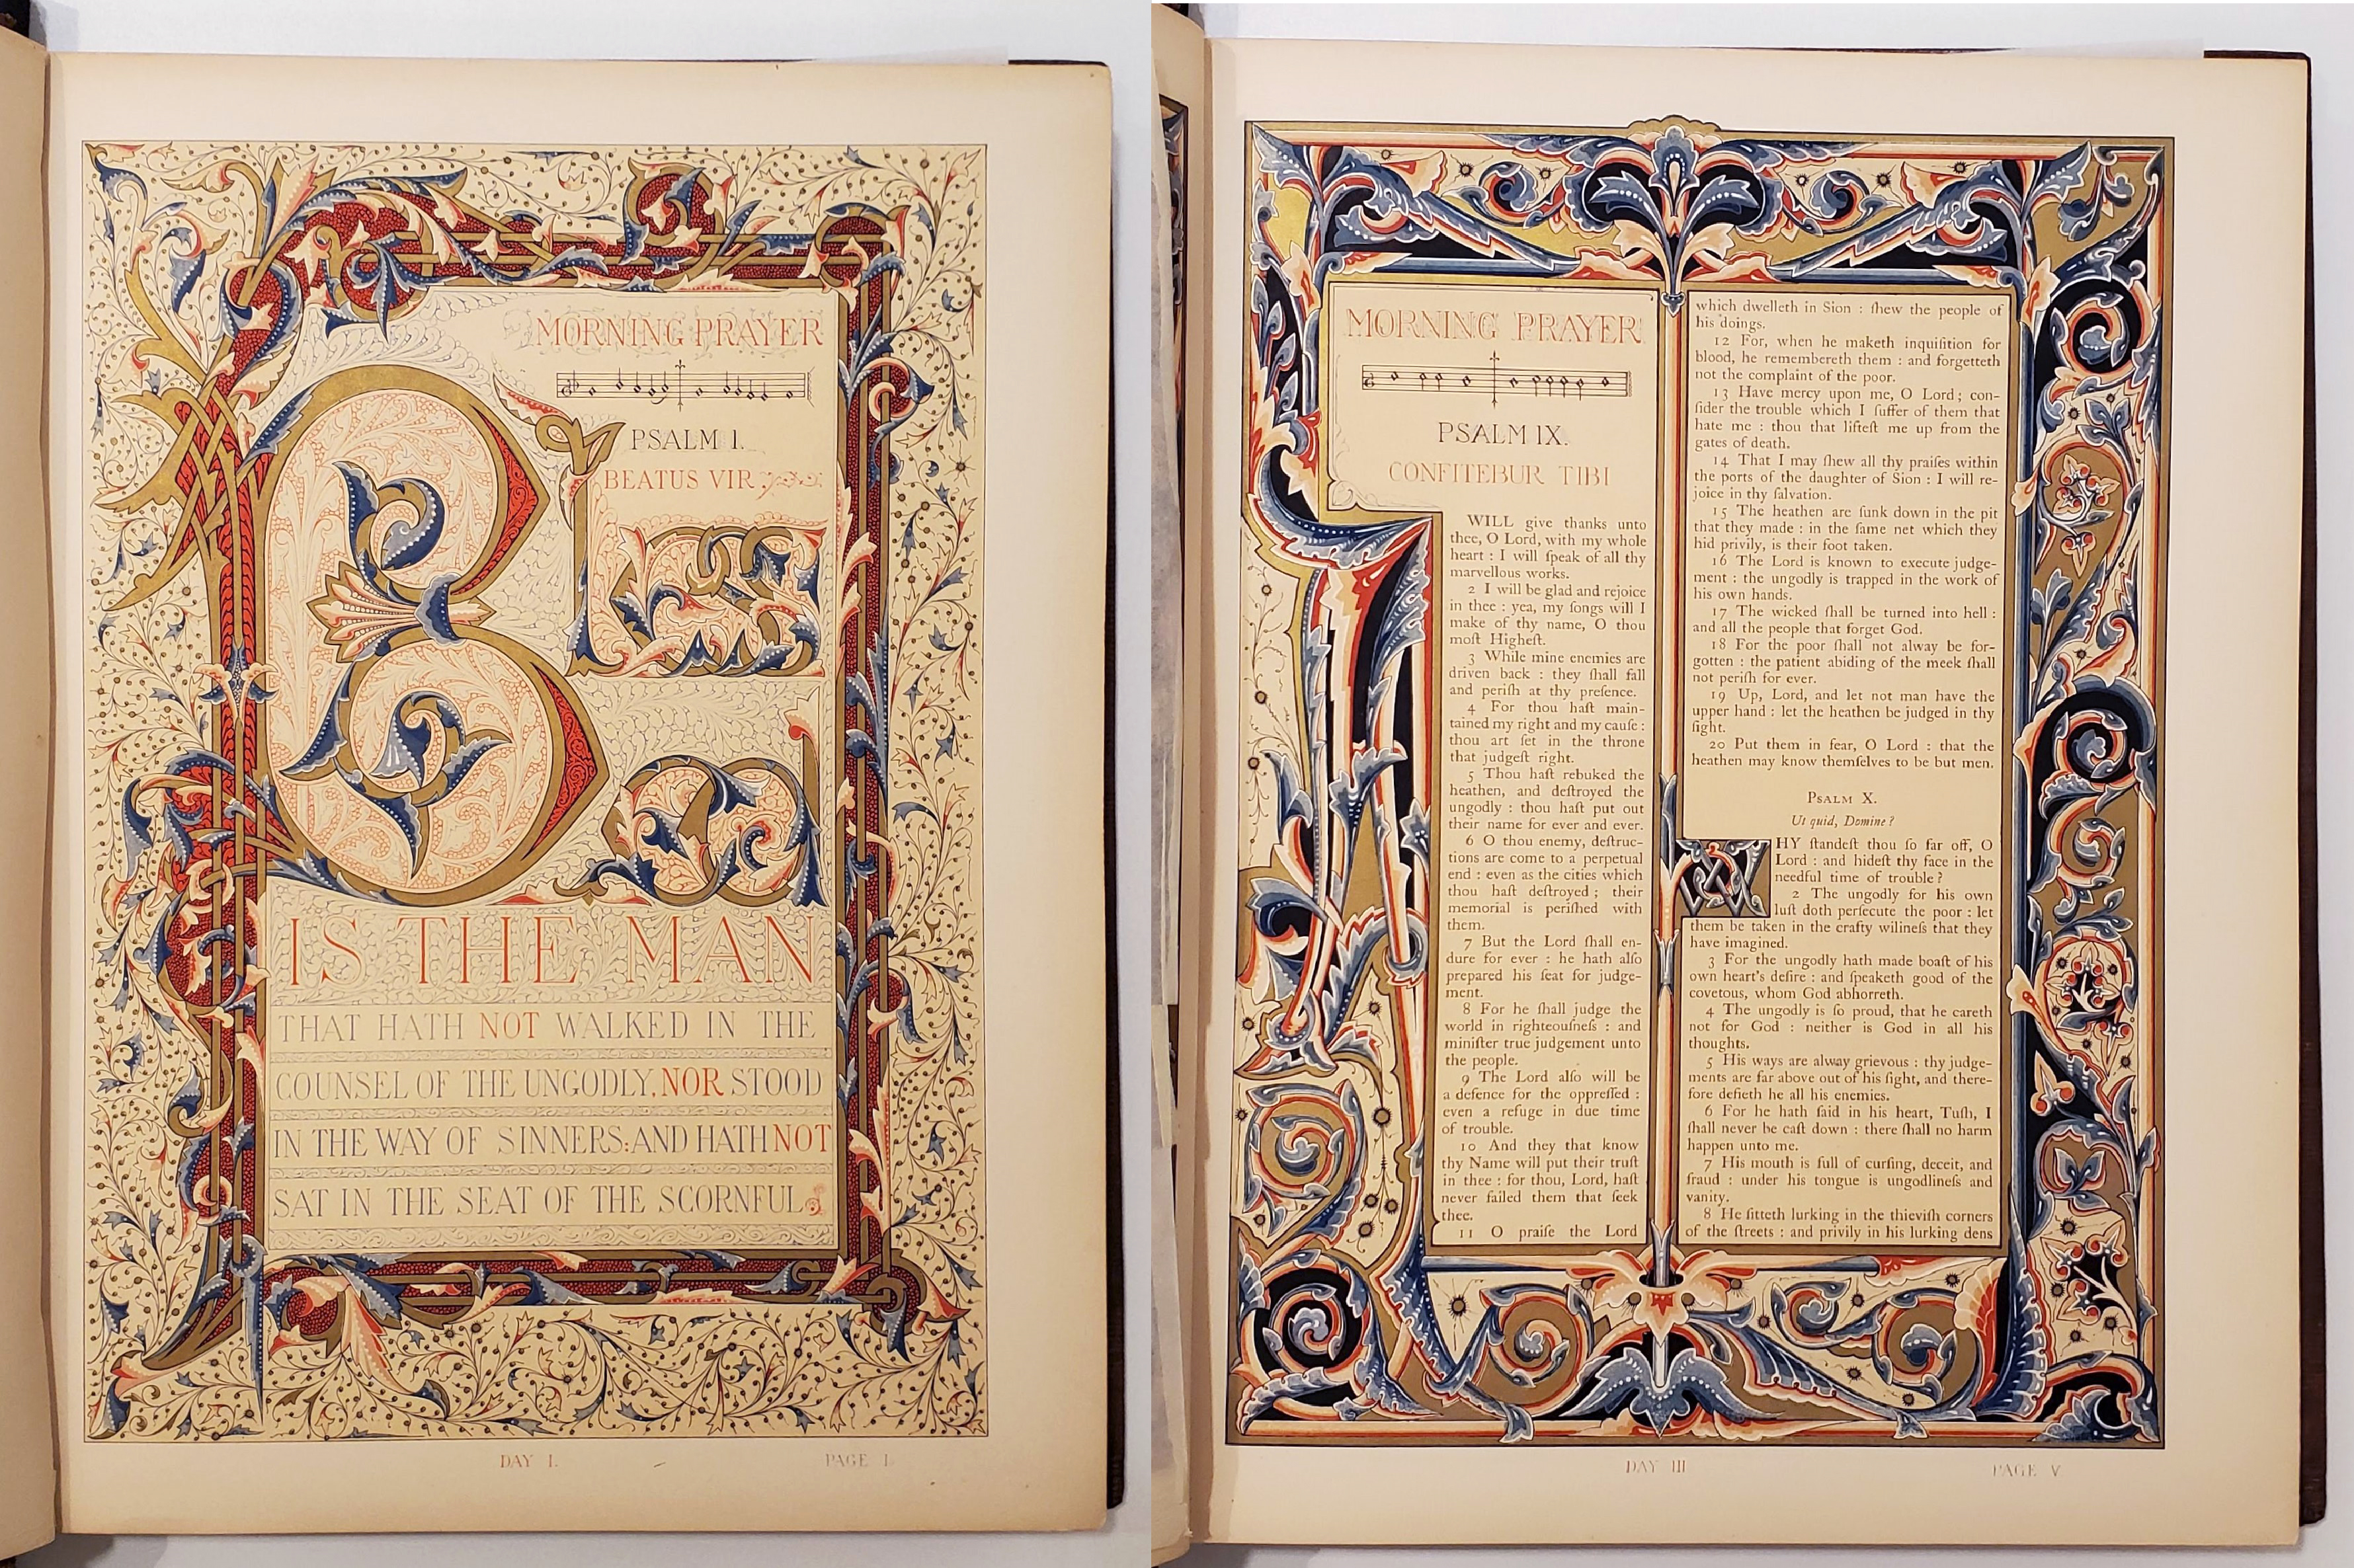 MORNING PRAYER
PSALM I.
BEATUS VIR
Blessed
IS THE MAN
THAT HATH NOT WALKED IN THE
COUNSEL OF THE UNGODLY, NOR STOOD
IN THE WAY OF SINNERS: AND HATH NOT
SAT IN THE SEAT OF THE SCORNFUL
DAY I.
PAGE I.
MORNING PRAYER
PSALM IX.
CONFITEBUR TIBI
I WILL give thanks unto
thee, O Lord, with my whole
heart : I will ſpeak of all thy
marvellous works.
2 I will be glad and rejoice
in thee : yea, my ſongs will I
make of thy name, O thou
moſt Higheſt.
3 While mine enemies are
driven back : they ſhall fall
and periſh at thy preſence.
4 For thou haſt main-
tained my right and my cauſe :
thou art ſet in the throne
that judgeſt right.
5 Thou haſt rebuked the
heathen, and deſtroyed the
ungodly : thou haſt put out
their name for ever and ever.
6 O thou enemy, deſtruc-
tions are come to a perpetual
end : even as the cities which
thou haſt deſtroyed ; their
memorial is periſhed with
them.
7 But the Lord ſhall en-
dure for ever : he hath alſo
prepared his ſeat for judge-
ment.
8 For he ſhall judge the
world in righteouſneſs : and
miniſter true judgement unto
the people.
9 The Lord alſo will be
a defence for the oppreſſed :
even a refuge in due time
of trouble.
10 And they that know
thy Name will put their truſt
in thee : for thou, Lord, haſt
never failed them that ſeek
thee.
11 O praiſe the Lord
which dwelleth in Sion : ſhew the people of
his doings.
12 For, when he maketh inquiſition for
blood, he remembereth them : and forgetteth
not the complaint of the poor.
13 Have mercy upon me, O Lord ; con-
ſider the trouble which I ſuffer of them that
hate me : thou that lifteſt me up from the
gates of death.
14 That I may ſhew all thy praiſes within
the ports of the daughter of Sion : I will re-
joice in thy ſalvation.
15 The heathen are ſunk down in the pit
that they made : in the ſame net which they
hid privily, is their foot taken.
16 The Lord is known to execute judge-
ment : the ungodly is trapped in the work of
his own hands.
17 The wicked ſhall be turned into hell :
and all the people that forget God.
18 For the poor ſhall not alway be for-
gotten : the patient abiding of the meek ſhall
not periſh for ever.
19 Up, Lord, and let not man have the
upper hand : let the heathen be judged in thy
ſight.
20 Put them in fear, O Lord : that the
heathen may know themſelves to be but men.
PSALM X.
Ut quid, Domine ?
WHY ſtandeſt thou ſo far off, O
Lord : and hideſt thy face in the
needful time of trouble ?
2 The ungodly for his own
luſt doth perſecute the poor : let
them be taken in the crafty wilineſs that they
have imagined.
3 For the ungodly hath made boaſt of his
own heart's deſire : and ſpeaketh good of the
covetous, whom God abhorreth.
4 The ungodly is ſo proud, that he careth
not for God : neither is God in all his
thoughts.
5 His ways are alway grievous : thy judge-
ments are far above out of his ſight, and there-
fore defieth he all his enemies.
6 For he hath ſaid in his heart, Tuſh, I
ſhall never be caſt down : there ſhall no harm
happen unto me.
7 His mouth is full of curſing, deceit, and
fraud : under his tongue is ungodlineſs and
vanity.
8 He ſitteth lurking in the thieviſh corners
of the ſtreets : and privily in his lurking dens
DAY III
PAGE V